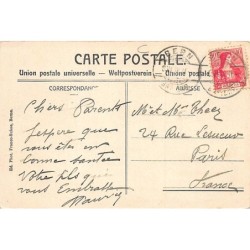 CARTE POSTALE.
Union postale universelle — Weltpostverein — Unione postale
CORRESPONDANCE
ADRESSE
BERN
Chers Parents
J'espère que
vous êtes en
bonne santée
Votre fils qui
vous Embrasse
Maurice
Mr et Mme
24 Rue
Paris
France